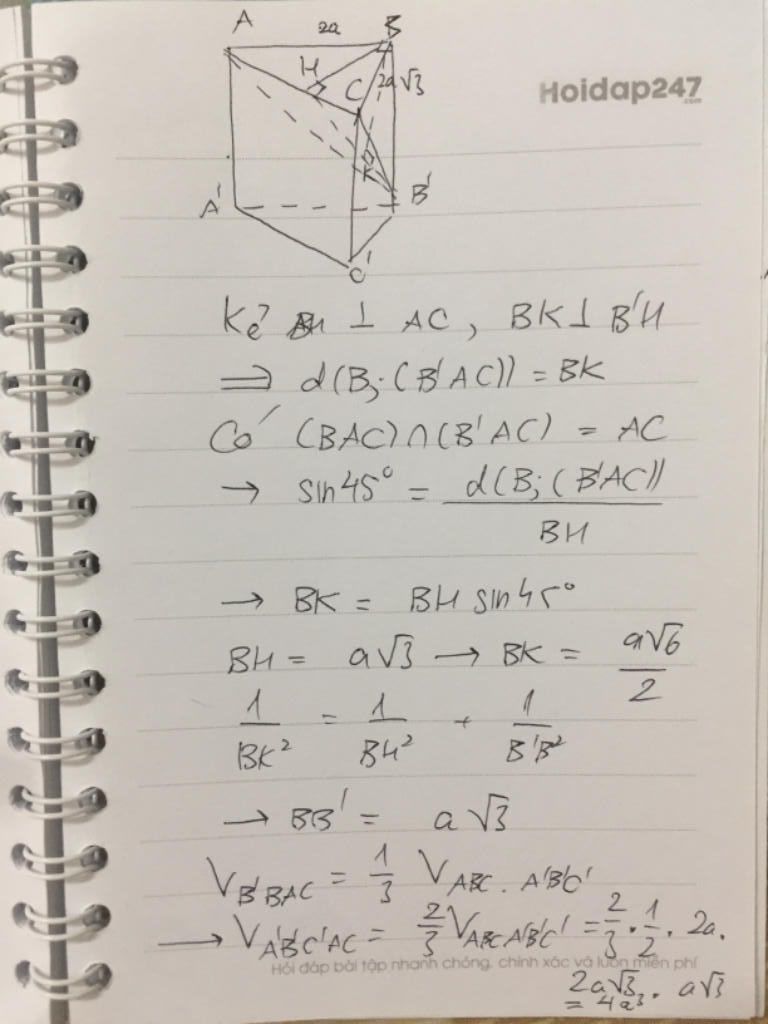 A
2a
B
H
C
2a√3
Hoidap247
.com
K
A'
B'
C'
Kẻ BH ⊥ AC, BK ⊥ B'H
⇒ d(B; (B'AC)) = BK
Có (BAC) ∩ (B'AC) = AC
→ sin45° = d(B; (B'AC)) / BH
→ BK = BH sin45°
BH = a√3 → BK = a√6 / 2
1 / BK² = 1 / BH² + 1 / B'B²
→ BB' = a√3
V B'BAC = 1/3 V ABC.A'B'C'
→ V A'B'C'AC = 2/3 V ABCA'B'C' = 2/3 . 1/2 . 2a.
Hỏi đáp bài tập nhanh chóng, chính xác và luôn miễn phí
2a√3 . a√3
= 4a³